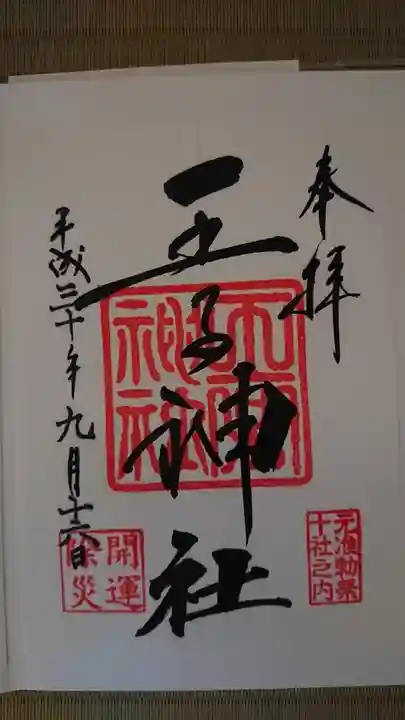 奉拝
王子神社
王子神社
元准勅祭
十社之内
平成三十年九月十六日
開運
除災